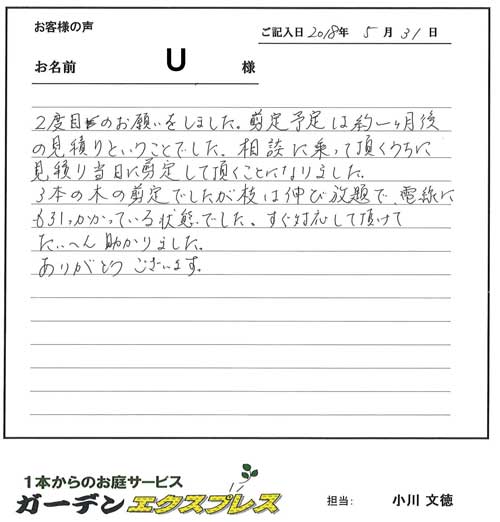 お客様の声
ご記入日 2018年 5月31日
お名前 U 様
2度目のお願いをしました。剪定予定は約一ヶ月後
の見積りということでした。相談に乗って頂くうちに
見積り当日に剪定して頂くことになりました。
3本の木の剪定でしたが枝は伸び放題で、電線に
も引っかかっている状態でした。すぐ対応して頂けて
たいへん助かりました。
ありがとうございます。
1本からのお庭サービス
ガーデンエクスプレス
担当: 小川 文徳